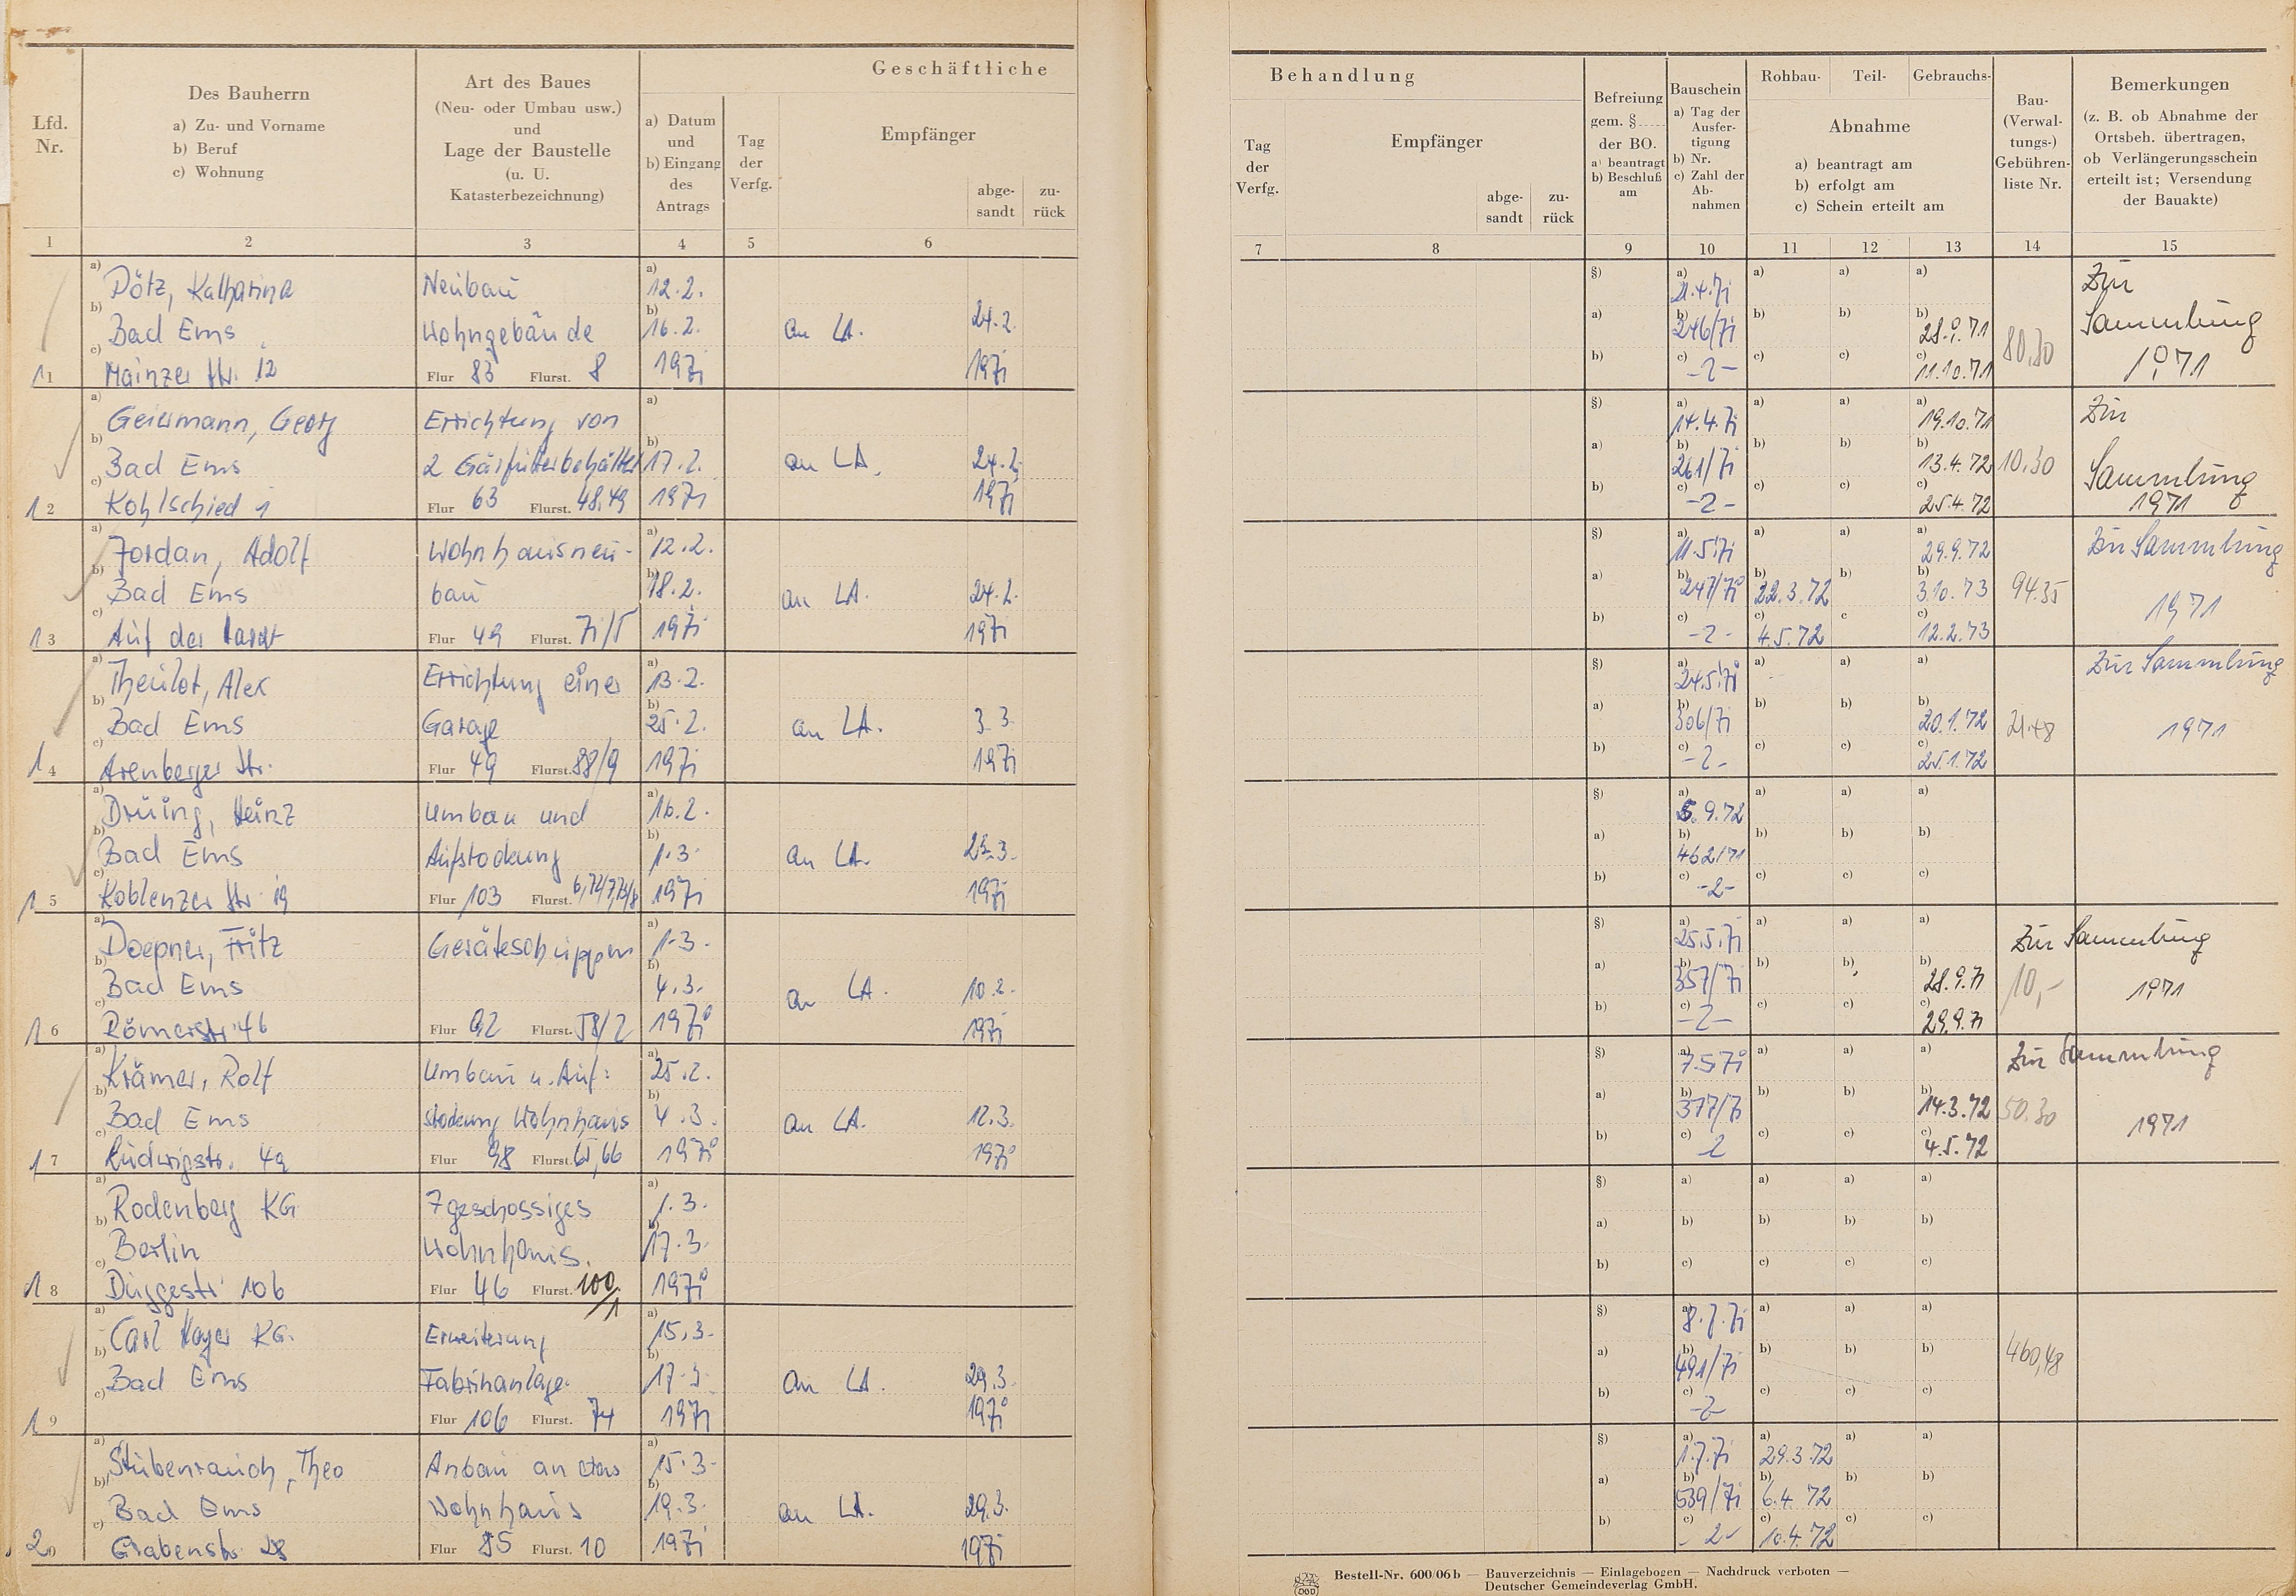 Geschäftliche
Behandlung
Lfd. Nr.
Des Bauherrn
a) Zu- und Vorname
b) Beruf
c) Wohnung
Art des Baues
(Neu- oder Umbau usw.)
und
Lage der Baustelle
(u. U.
Katasterbezeichnung)
a) Datum
und
b) Eingang
des
Antrags
Tag
der
Verfg.
Empfänger
abge-
sandt
zu-
rück
Tag
der
Verfg.
Empfänger
abge-
sandt
zu-
rück
Befreiung
gem. §
der BO.
a) beantragt
b) Beschluß
am
Bauschein
a) Tag der
Ausfer-
tigung
b) Nr.
c) Zahl der
Ab-
nahmen
Rohbau- Teil- Gebrauchs-
Abnahme
a) beantragt am
b) erfolgt am
c) Schein erteilt am
Bau-
(Verwal-
tungs-)
Gebühren-
liste Nr.
Bemerkungen
(z. B. ob Abnahme der
Ortsbeh. übertragen,
ob Verlängerungsschein
erteilt ist; Versendung
der Bauakte)
1 2 3 4 5 6 7 8 9 10 11 12 13 14 15
a) Dötz, Katharina Neubau a) 12.2. §) a) 21.4.71 a) a) a) Zur
b) Bad Ems Wohngebäude b) 16.2. an LA. 24.2. a) b) 246/71 b) b) b) 28.9.71 80,30 Sammlung
11 c) Mainzer Str. 12 Flur 83 Flurst. 8 1971 1971 b) c) -2- c) c) c) 11.10.71 1971
a) Geiermann, Georg Errichtung von a) §) a) 14.4.71 a) a) a) 19.10.71 Zur
b) Bad Ems 2 Gärfutterbehälter b) 17.2. an LA. 24.2. a) b) 261/71 b) b) b) 13.4.72 10.30 Sammlung
12 c) Kohlschied 1 Flur 63 Flurst. 48,49 1971 1971 b) c) -2- c) c) c) 25.4.72 1971
a) Jordan, Adolf Wohnhausneu- a) 12.2. §) a) 11.5.71 a) a) a) 29.9.72 Zur Sammlung
b) Bad Ems bau b) 18.2. an LA. 24.2. a) b) 247/71 b) 22.3.72 b) b) 3.10.73 94.35 1971
13 c) Auf der Flur 49 Flurst. 71/5 1971 1971 b) c) -2- c) 4.5.72 c c) 12.2.73
a) Theilot, Alex Errichtung einer a) 13.2. §) a) 24.5.71 a) a) a) Zur Sammlung
b) Bad Ems Garage b) 25.2. an LA. 3.3. a) b) 306/71 b) b) b) 20.1.72 21.48 1971
14 c) Arenberger Str. Flur 49 Flurst. 88/9 1971 1971 b) c) -2- c) c) c) 25.1.72
a) Drüing, Heinz Umbau und a) 16.2. §) a) 5.9.72 a) a) a)
b) Bad Ems Aufstockung b) 1.3. an LA. 23.3. a) b) 462/71 b) b) b)
15 c) Koblenzer Str. 19 Flur 103 Flurst. 1971 1971 b) c) -2- c) c) c)
a) Doepner, Fritz Geräteschuppen a) 1.3. §) a) 25.5.71 a) a) a) Zur Sammlung
b) Bad Ems b) 4.3. an LA. 10.2. a) b) 357/71 b) b) b) 28.9.71 10,- 1971
16 c) Römerstr. 46 Flur 92 Flurst. 58/2 1971 1971 b) c) -2- c) c) c) 29.9.71
a) Krämer, Rolf Umbau u. Auf- a) 25.2. §) a) 7.5.71 a) a) a) Zur Sammlung
b) Bad Ems stockung Wohnhaus b) 4.3. an LA. 12.3. a) b) 377/71 b) b) b) 14.3.72 50.30 1971
17 c) Ludwigstr. 4a Flur 98 Flurst. 65,66 1971 1971 b) c) 2 c) c) c) 4.5.72
a) Rodenberg KG 7geschossiges a) 1.3. §) a) a) a) a)
b) Berlin Wohnhaus b) 17.3. a) b) b) b) b)
18 c) 106 Flur 46 Flurst. 100/1 1971 b) c) c) c) c)
a) Carl Mayer KG. Erweiterung a) 15.3. §) a) 8.7.71 a) a) a)
b) Bad Ems Fabrikanlage b) 17.3. an LA. 29.3. a) b) 491/71 b) b) b) 460,48
19 c) Flur 106 Flurst. 74 1971 1971 b) c) -2- c) c) c)
a) Stubenrauch, Theo Anbau an das a) 15.3. §) a) 1.7.71 a) 29.3.72 a) a)
b) Bad Ems Wohnhaus b) 19.3. an LA. 29.3. a) b) 539/71 b) 6.4.72 b) b)
20 c) Grabenstr. 28 Flur 85 Flurst. 10 1971 1971 b) c) -2- c) 10.4.72 c) c)
Bestell-Nr. 600/06 b — Bauverzeichnis — Einlagebogen — Nachdruck verboten —
Deutscher Gemeindeverlag GmbH.